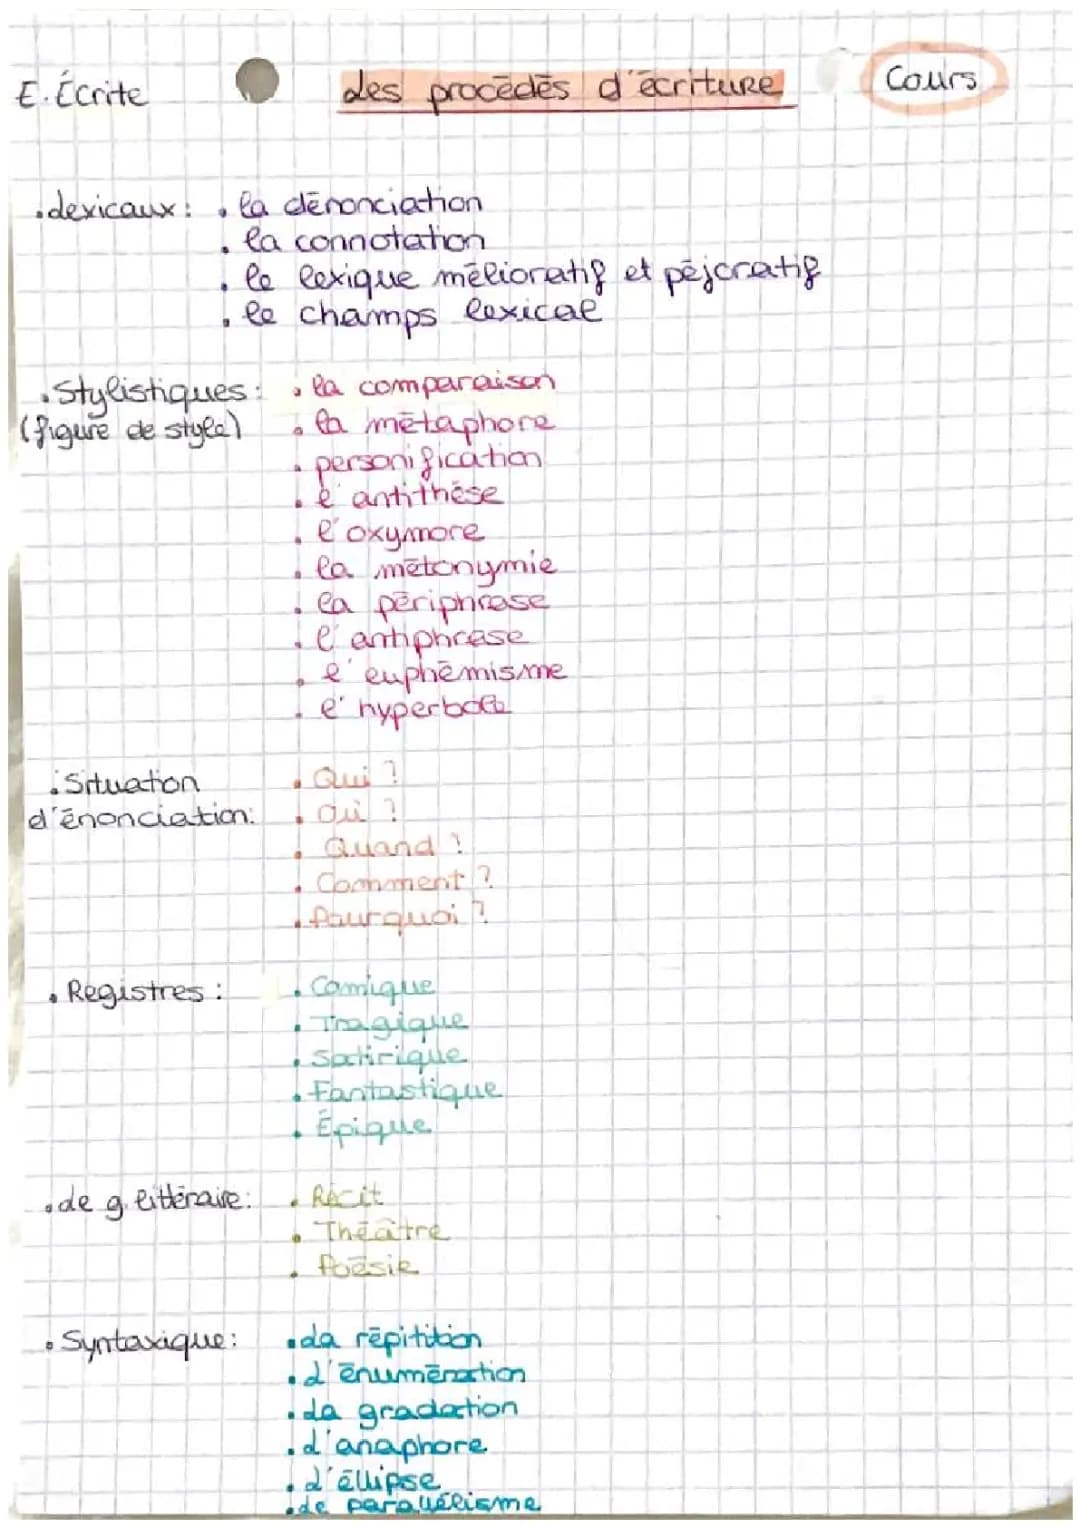 E. Écrite
Les procédés d'écriture
Cours
. Lexicaux : . la dénonciation
. la connotation
. le lexique mélioratif et péjoratif
. le champs lexical
. Stylistiques : . la comparaison
(figure de style) . la métaphore
. personification
. l'antithèse
. l'oxymore
. la métonymie
. la périphrase
. l'antiphrase
. l'euphémisme
. l'hyperbole
. Situation . Qui ?
d'énonciation : . Oui ?
. Quand ?
. Comment ?
. Pourquoi ?
. Registres : . Comique
. Tragique
. Satirique
. Fantastique
. Épique
. Le g. littéraire : . Récit
. Théâtre
. Poésie
. Syntaxique : . La répitition
. L'énumération
. La gradation
. L'anaphore
. L'éllipse
. Le parallélisme